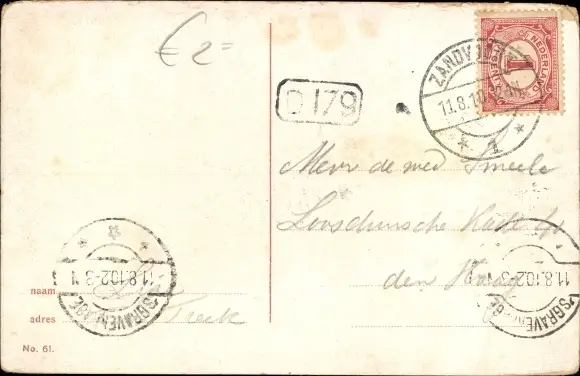 € 2=
D 179
ZANDVOORT
11.8.10
1
NEDERLAND
1
Mevr de wed Smeele
Loosduinsche Kade
den Haag
'S GRAVENHAGE
11.8.10 2-3 N
'S GRAVENHAGE
11.8.10 2-3 N
naam
adres Treek
No. 61.